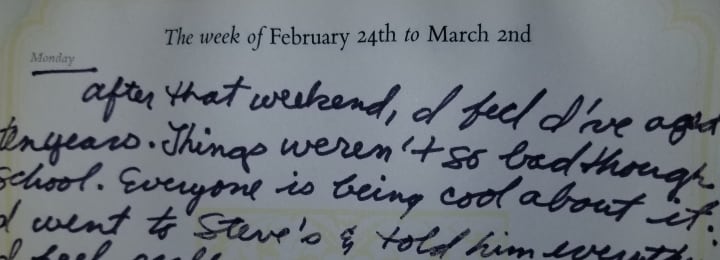 The week of February 24th to March 2nd
Monday
after that weekend, I feel I've aged
ten years. Things weren't so bad though
school. Everyone is being cool about it.
I went to Steve's & told him
I feel